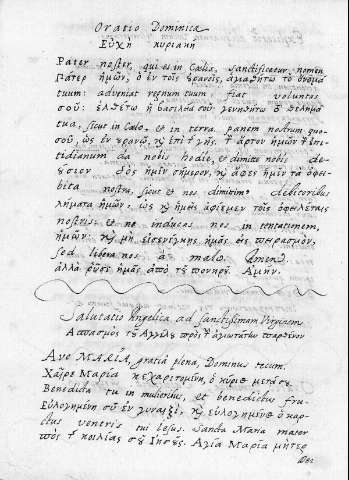 Oratio Dominica
Εὐχὴ κυριακὴ
Pater noster, qui es in Cælis, sanctificetur nomen
Πάτερ ἡμῶν, ὁ ἐν τοῖς οὐρανοῖς, ἁγιασθήτω τὸ ὄνομά
tuum: adveniat regnum tuum: fiat voluntas
σου: ἐλθέτω ἡ βασιλεία σου γενηθήτω τὸ θέλημά
tua, sicut in Cælo, & in terra. panem nostrum quo-
σου, ὡς ἐν οὐρανῷ, καὶ ἐπὶ τῆς γῆς. τὸν ἄρτον ἡμῶν τὸν ἐπι-
tidianum da nobis hodie, et dimitte nobis de-
ούσιον δὸς ἡμῖν σήμερον, καὶ ἄφες ἡμῖν τὰ ὀφει-
bita nostra, sicut & nos dimittimus debitoribus
λήματα ἡμῶν, ὡς καὶ ἡμεῖς ἀφίεμεν τοῖς ὀφειλέταις
nostris & ne inducas nos in tentationem,
ἡμῶν: καὶ μὴ εἰσενέγκῃς ἡμᾶς εἰς πειρασμόν,
sed libera nos a malo. Amen.
ἀλλὰ ῥῦσαι ἡμᾶς ἀπὸ τοῦ πονηροῦ. Ἀμήν.
Salutatio Angelica ad Sanctissimam Virginem
Ἀσπασμὸς τοῦ Ἀγγέλου πρὸς τὴν ἁγιωτάτην παρθένον
Ave MARIA, gratiâ plena, Dominus tecum.
Χαῖρε Μαρία κεχαριτωμένη, ὁ κύριος μετὰ σοῦ.
Benedicta tu in mulieribus, et benedictus fru-
Εὐλογημένη σὺ ἐν γυναιξὶ, καὶ εὐλογημένος ὁ καρ-
ctus ventris tui Iesus. Sancta Maria mater
πὸς τῆς κοιλίας σου Ἰησοῦς. Ἁγία Μαρία μῆτερ